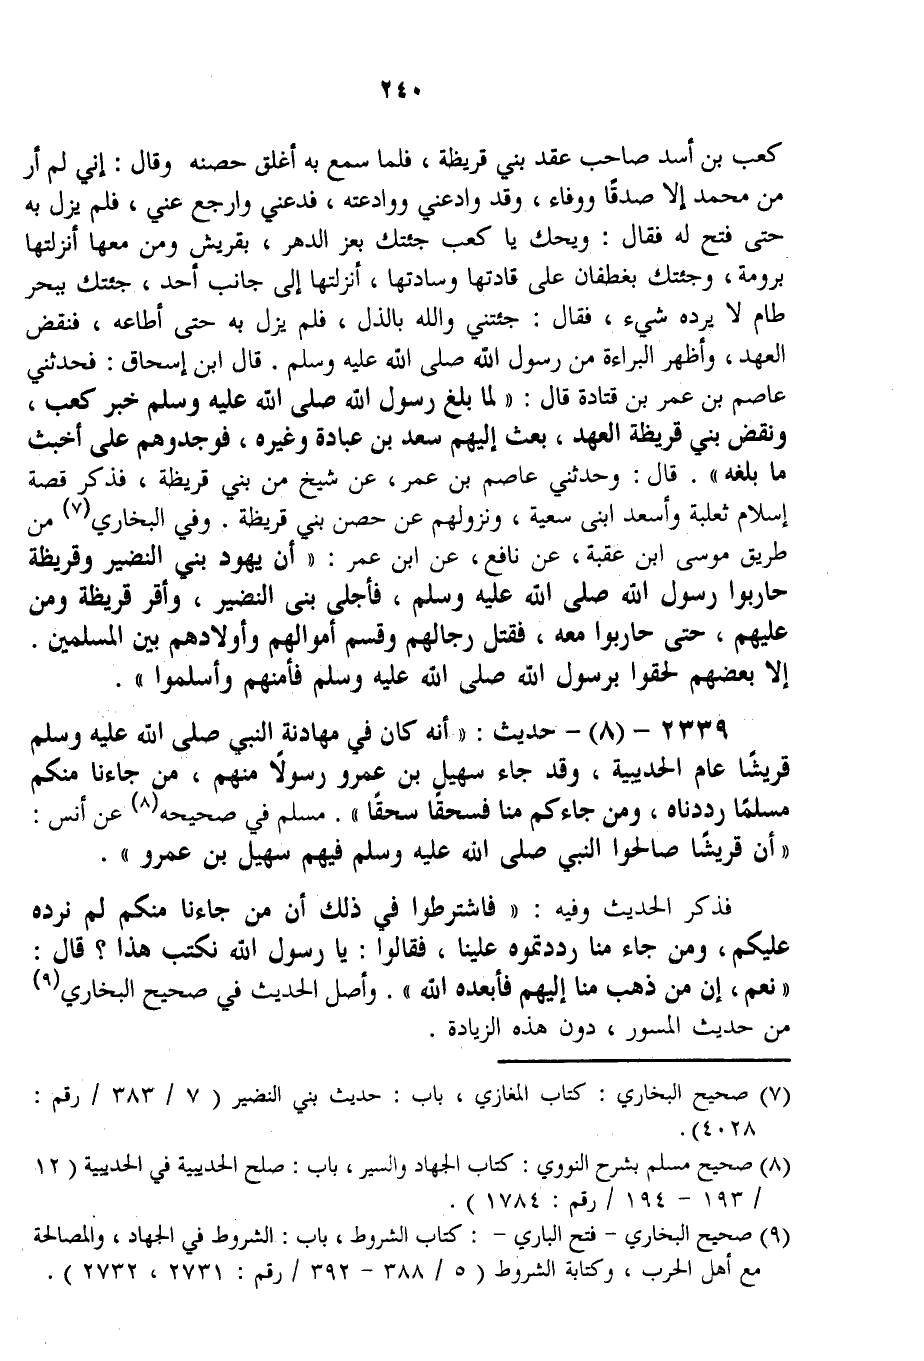 ٢٤٠
كعب بن أسد صاحب عقد بني قريظة ، فلما سمع به أغلق حصنه وقال : إني لم أر
من محمد إلا صدقًا ووفاء ، وقد وادعني ووادعته ، فدعني وارجع عني ، فلم يزل به
حتى فتح له فقال : ويحك يا كعب جئتك بعز الدهر ، بقريش ومن معها أنزلتها
برومة ، وجئتك بغطفان على قادتها وسادتها ، أنزلتها إلى جانب أحد ، جئتك ببحر
طام لا يرده شيء ، فقال : جئتني والله بالذل ، فلم يزل به حتى أطاعه ، فنقض
العهد ، وأظهر البراءة من رسول الله صلى الله عليه وسلم . قال ابن إسحاق : فحدثني
عاصم بن عمر بن قتادة قال : « لما بلغ رسول الله صلى الله عليه وسلم خبر كعب ،
ونقض بني قريظة العهد ، بعث إليهم سعد بن عبادة وغيره ، فوجدوهم على أخبث
ما بلغه » . قال : وحدثني عاصم بن عمر ، عن شيخ من بني قريظة ، فذكر قصة
إسلام ثعلبة وأسعد ابنى سعية ، ونزولهم عن حصن بني قريظة . وفي البخاري(٧) من
طريق موسى ابن عقبة ، عن نافع ، عن ابن عمر : « أن يهود بني النضير وقريظة
حاربوا رسول الله صلى الله عليه وسلم ، فأجلى بنى النضير ، وأقر قريظة ومن
عليهم ، حتى حاربوا معه ، فقتل رجالهم وقسم أموالهم وأولادهم بين المسلمين .
إلا بعضهم لحقوا برسول الله صلى الله عليه وسلم فأمنهم وأسلموا » .
٢٣٣٩ – (٨) – حديث : « أنه كان في مهادنة النبي صلى الله عليه وسلم
قريشًا عام الحديبية ، وقد جاء سهيل بن عمرو رسولًا منهم ، من جاءنا منكم
مسلمًا رددناه ، ومن جاءكم منا فسحقًا سحقًا » . مسلم في صحيحه(٨) عن أنس :
« أن قريشًا صالحوا النبي صلى الله عليه وسلم فيهم سهيل بن عمرو » .
فذكر الحديث وفيه : « فاشترطوا في ذلك أن من جاءنا منكم لم نرده
عليكم ، ومن جاء منا رددتموه علينا ، فقالوا : يا رسول الله نكتب هذا ؟ قال :
« نعم ، إن من ذهب منا إليهم فأبعده الله » . وأصل الحديث في صحيح البخاري(٩)
من حديث المسور ، دون هذه الزيادة .
(٧) صحيح البخاري : كتاب المغازي ، باب : حديث بني النضير ( ٧ / ٣٨٣ / رقم :
٤٠٢٨).
(٨) صحيح مسلم بشرح النووي : كتاب الجهاد والسير ، باب : صلح الحديبية في الحديبية ( ١٢
/ ١٩٣ – ١٩٤ / رقم : ١٧٨٤ ) .
(٩) صحيح البخاري – فتح الباري – : كتاب الشروط ، باب : الشروط في الجهاد ، والمصالحة
مع أهل الحرب ، وكتابة الشروط ( ٥ / ٣٨٨ – ٣٩٢ / رقم : ٢٧٣١ ، ٢٧٣٢ ) .